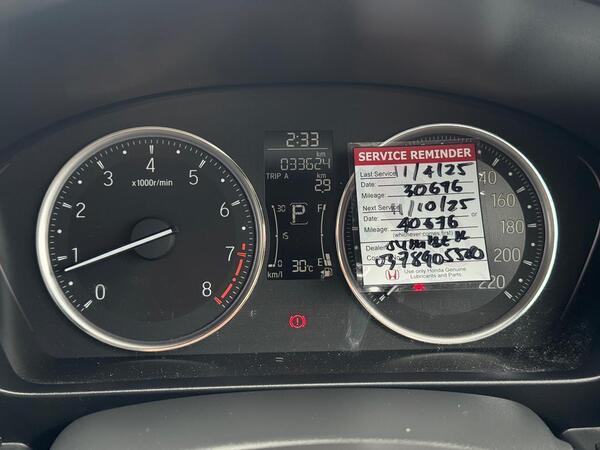 4
x1000r/min
5
3
6
2
7
1
8
0
2:33
033624
TRIP A
km
29
30
15
0
P
F
E
km/l
30°C
SERVICE REMINDER
Last Service
11/4/25
Date:
Mileage:
30676
Next Service
11/10/25
Date:
or
Mileage:
40676
(whichever comes first)
Dealer
0378905500
Use only Honda Genuine
Lubricants and Parts
140
160
180
200
220